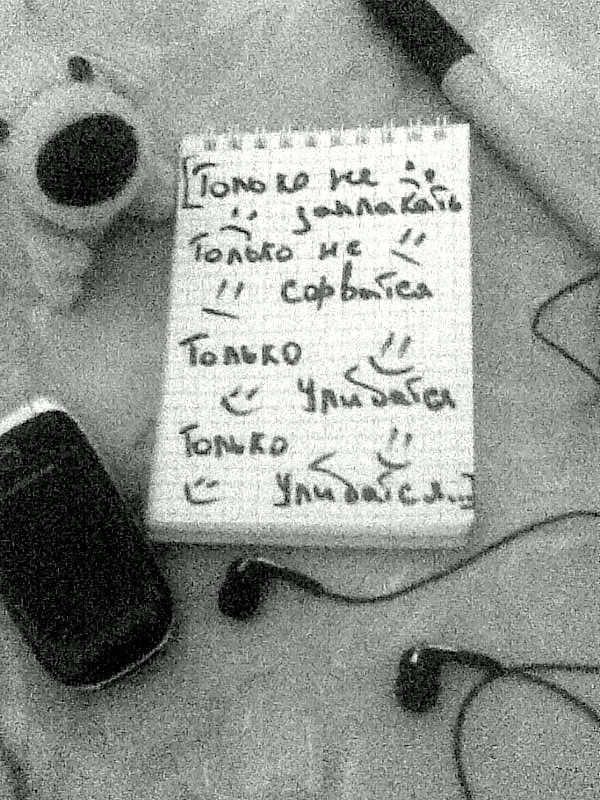 [Только не
заплакать
Только не
сорватся
Только
Улибатся
Только
Улибатся...]